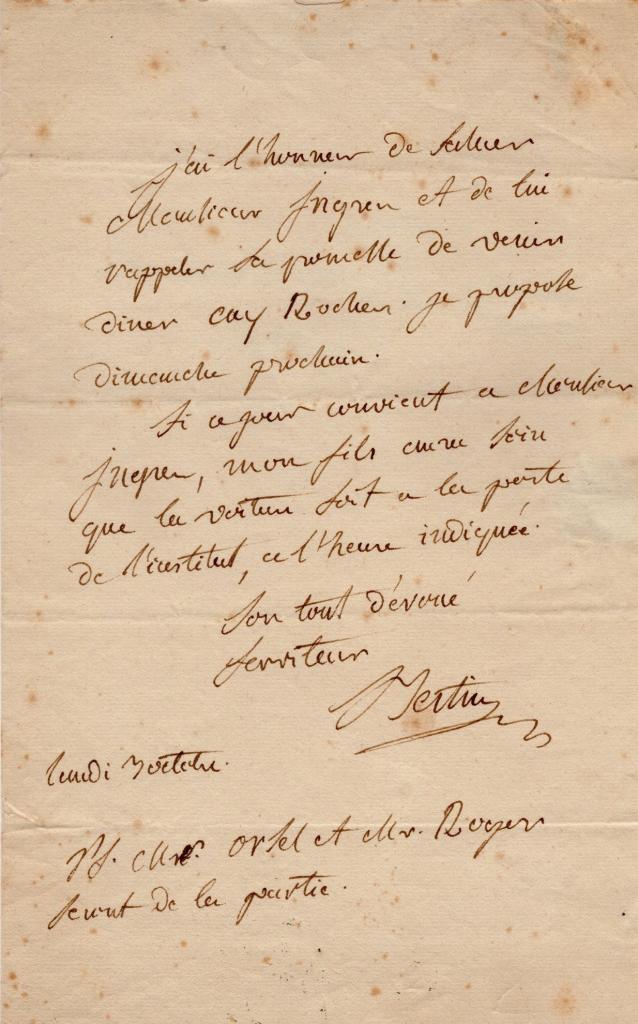 j'ai l'honneur de saluer
Monsieur Ingres et de lui
rappeler sa promesse de venir
diner aux Roches. je propose
dimanche prochain.
Si ce jour convient a Monsieur
Ingres, mon fils aura soin
que la voiture soit a la porte
de l'institut, a l'heure indiquée.
Son tout dévoué
serviteur
Bertin
lundi 3 octobre.
PS. Mr. Orsel et Mr. Roger
seront de la partie.